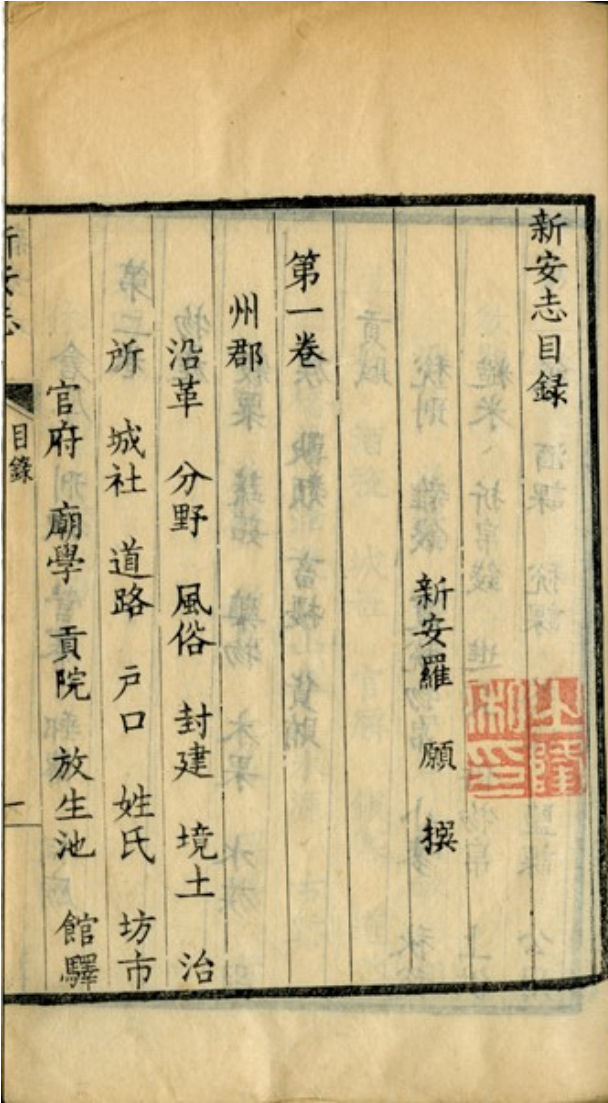 新安志目録
新安羅願撰
第一卷
州郡
沿革 分野 風俗 封建 境土 治
所 城社 道路 戸口 姓氏 坊市
官府 廟學 貢院 放生池 館驛
新安志 目錄 一